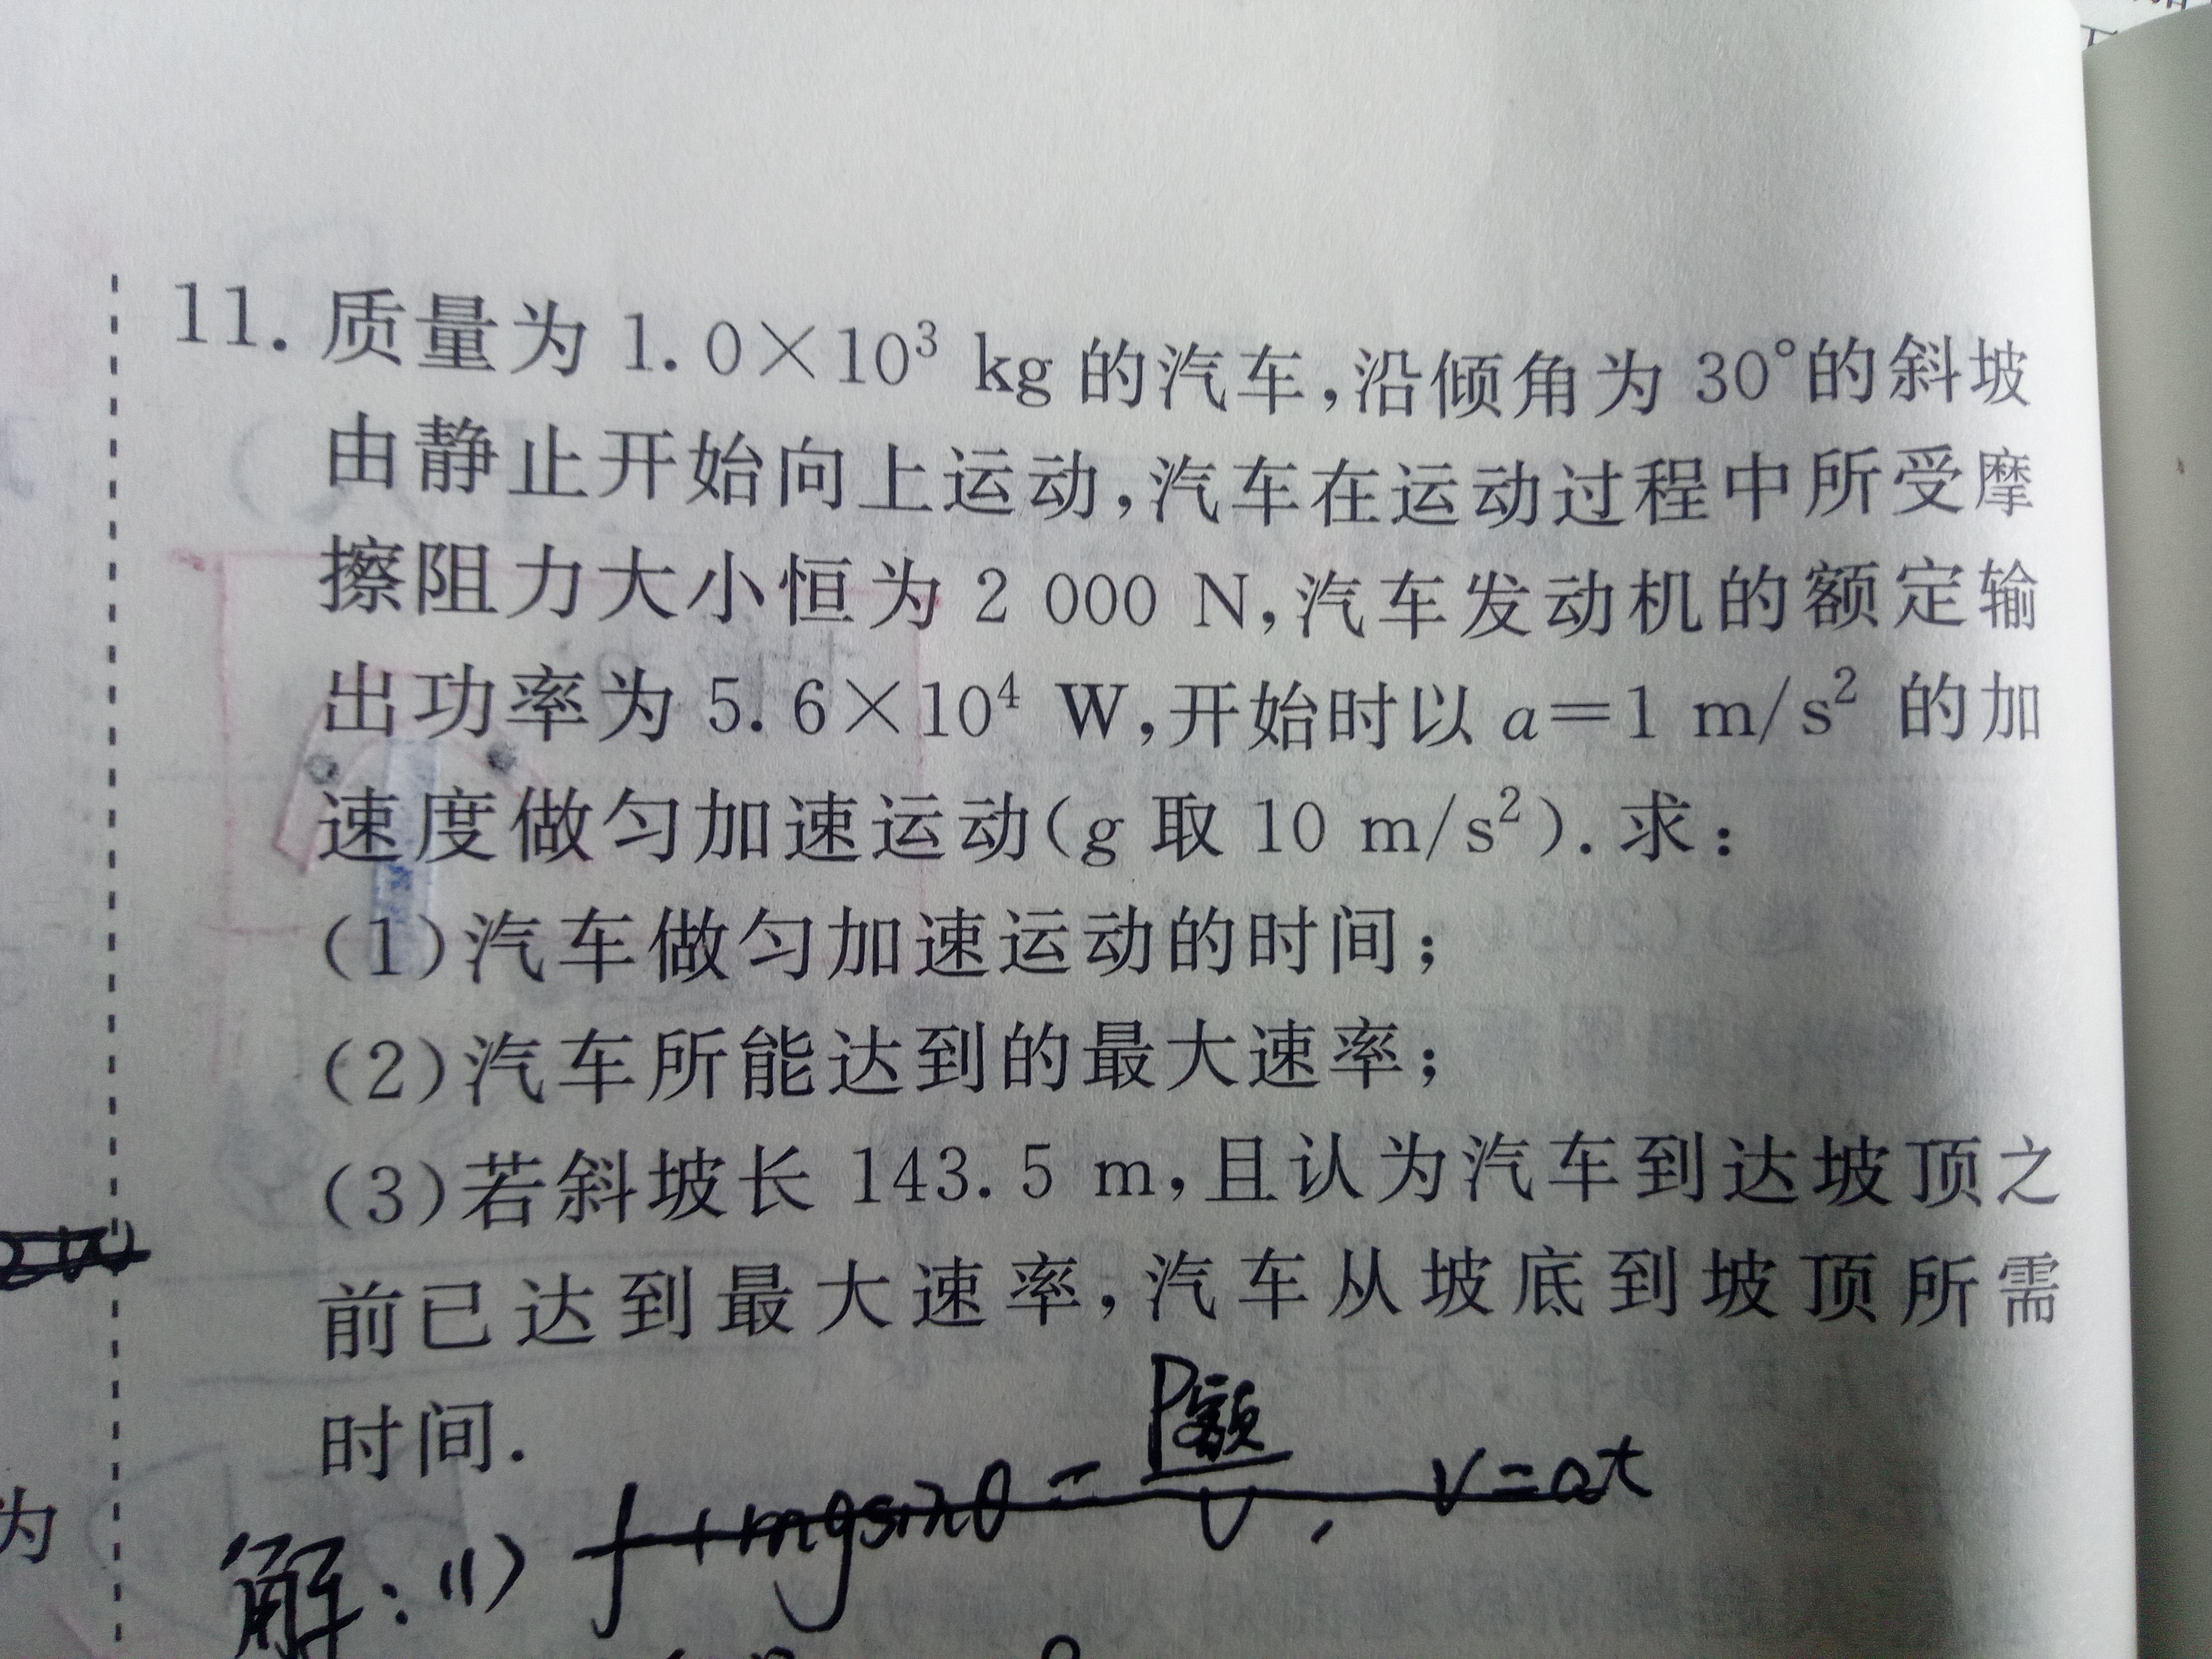 11. 质量为 1.0×10³ kg 的汽车,沿倾角为 30°的斜坡
由静止开始向上运动,汽车在运动过程中所受摩
擦阻力大小恒为 2 000 N,汽车发动机的额定输
出功率为 5.6×10⁴ W,开始时以 a=1 m/s² 的加
速度做匀加速运动(g 取 10 m/s²).求:
(1)汽车做匀加速运动的时间;
(2)汽车所能达到的最大速率;
(3)若斜坡长 143.5 m,且认为汽车到达坡顶之
前已达到最大速率,汽车从坡底到坡顶所需
时间.
为
解:(1) f+mgsinθ=P额/v, v=at